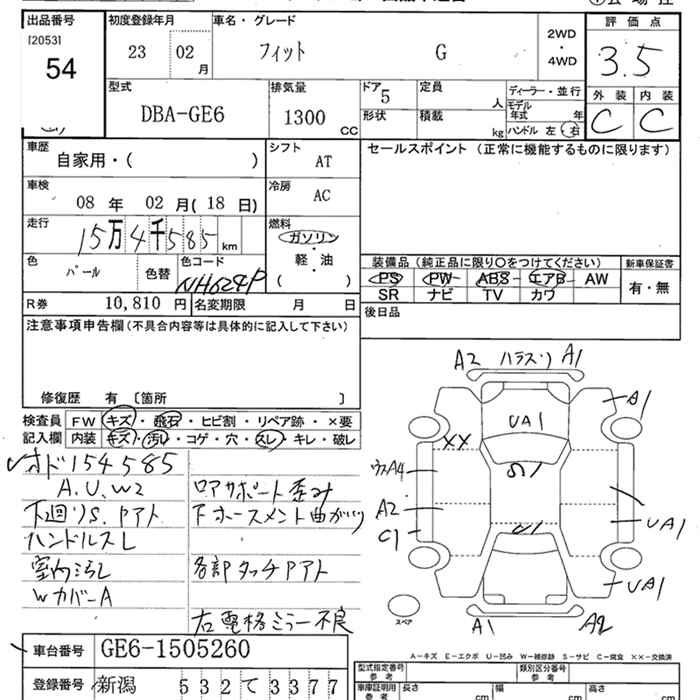 出品番号 初度登録年月 車名・グレード 2WD・4WD 評価点
[2053]
54 23 02月 フィット G 3.5
型式 排気量 ドア 5 定員 人 ディーラー・並行 外装 内装
DBA-GE6 1300CC 形状 積載 kg モデル年式 年 C C
ハンドル 左・右
車歴 シフト セールスポイント (正常に機能するものに限ります)
自家用・( ) AT
車検 冷房
08年 02月(18日) AC
走行 燃料
15万4千585km ガソリン・軽・油
色 色コード ( )
パール 色替 NH624P
装備品 (純正品に限り○をつけてください) 新車保証書
PS PW ABS エアB AW 有・無
SR ナビ TV カワ
R券 10,810円 名変期限 月 日 後日品
注意事項申告欄 (不具合内容等は具体的に記入して下さい)
修復歴 有 〔箇所 〕
検査員 FW キズ・飛石・ヒビ割・リペア跡・×要
記入欄 内装 キズ・汚レ・コゲ・穴・スレ・キレ・破レ
オド154585
A.U.W2 ロアサポート歪み
下廻りS.Pアト 下ホースメント曲がり
ハンドルスレ
室内汚レ 各部タッチPアト
WカバーA
右電格ミラー不良
車台番号 GE6-1505260
登録番号 新潟 532て3377
A2 ハラスリ A1
A1
UA1
XX
ウスA4
A2
C1
UA1
UA1
A1 A2
スペア
A-キズ E-エクボ U-凹み W-補修跡 S-サビ C-腐食 XX-交換済
型式指定番号 類別区分番号
参考 参考
車庫証明用 長さ 幅 高さ
参考 cm cm cm